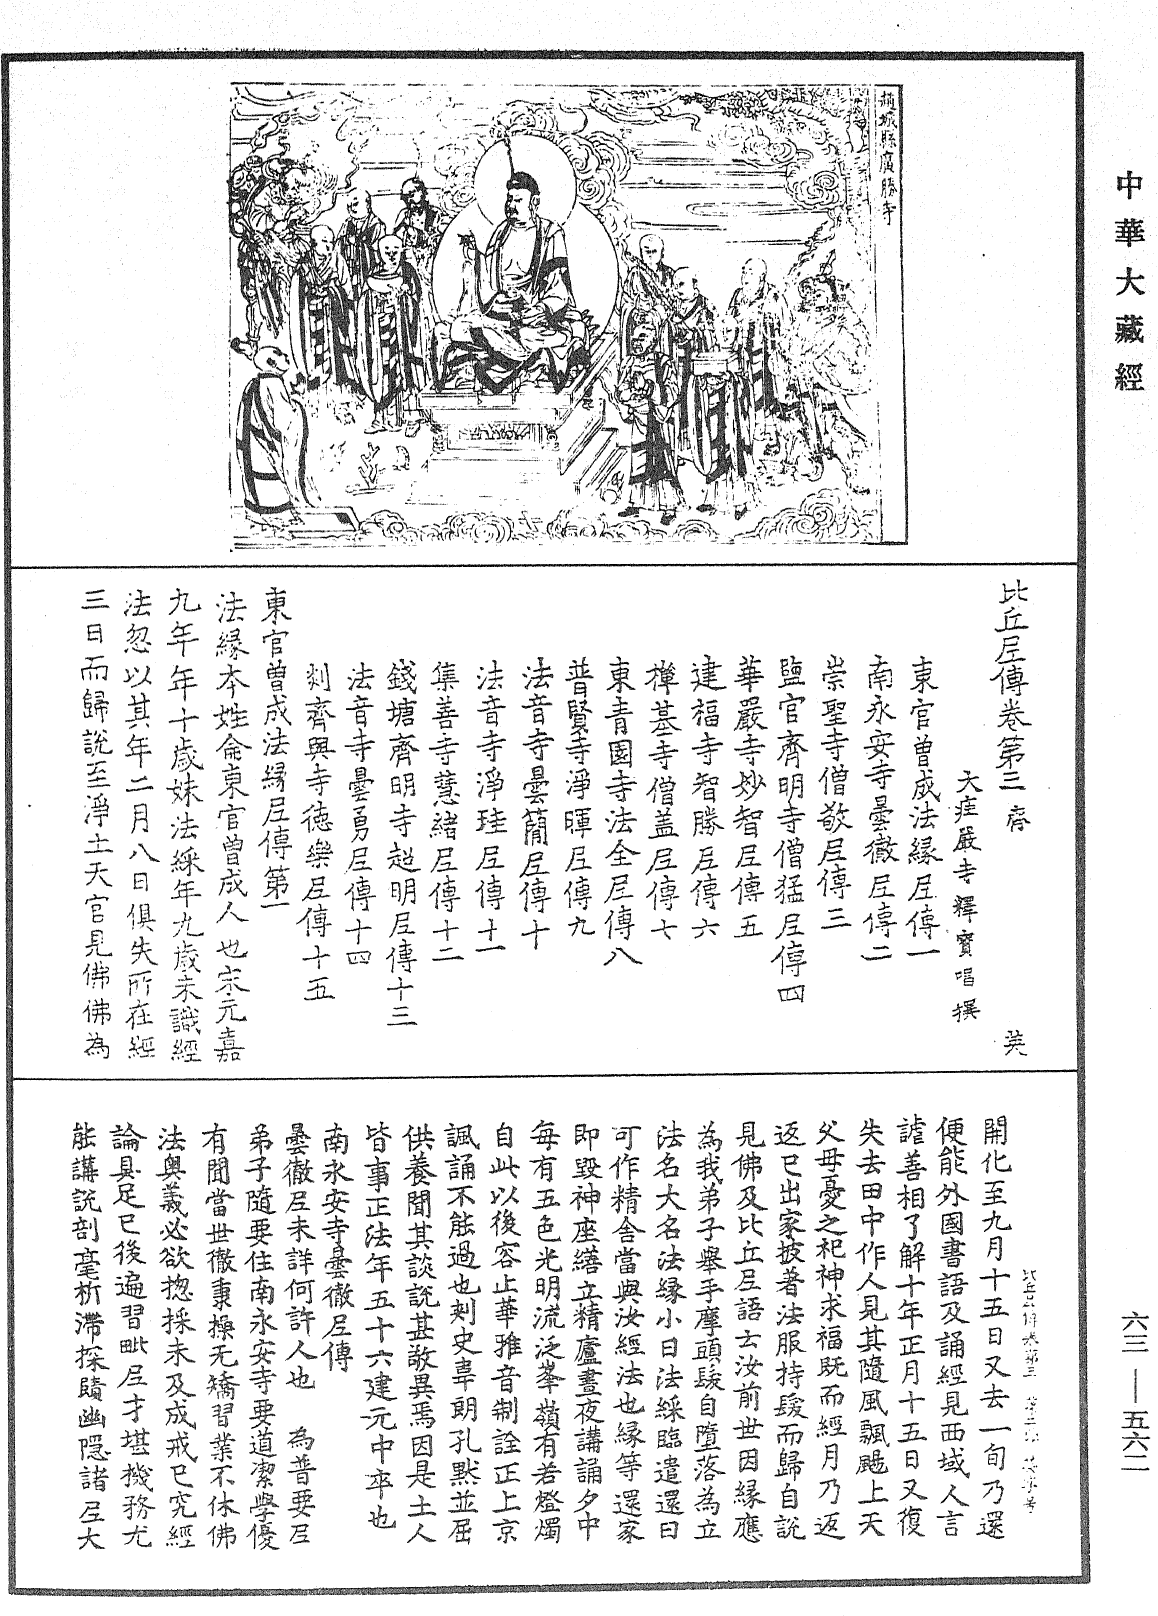 中華大藏經
六三—五六二
趙城縣廣勝寺
比丘尼傳卷第三 齊 英
大莊嚴寺釋寶唱撰
東官曾成法緣尼傳一
南永安寺曇徹尼傳二
崇聖寺僧敬尼傳三
鹽官齊明寺僧猛尼傳四
華嚴寺妙智尼傳五
建福寺智勝尼傳六
禪基寺僧盖尼傳七
東青園寺法全尼傳八
普賢寺淨暉尼傳九
法音寺曇簡尼傳十
法音寺淨珪尼傳十一
集善寺慧緒尼傳十二
錢塘齊明寺超明尼傳十三
法音寺曇勇尼傳十四
剡齊興寺德樂尼傳十五
東官曾成法緣尼傳第一
法緣本姓侖東官曾成人也宋元嘉
九年年十歲妹法綵年九歲未識經
法忽以其年二月八日俱失所在經
三日而歸說至淨土天宮見佛佛為
開化至九月十五日又去一旬乃還
便能外國書語及誦經見西域人言
謔善相了解十年正月十五日又復
失去田中作人見其隨風飄颺上天
父母憂之祀神求福既而經月乃返
返已出家披著法服持髮而歸自說
見佛及比丘尼語云汝前世因緣應
為我弟子舉手摩頭髮自墮落為立
法名大名法緣小曰法綵臨遣還曰
可作精舍當與汝經法也緣等還家
即毀神座繕立精廬晝夜講誦夕中
每有五色光明流泛峯嶺有若燈燭
自此以後容止華雅音制詮正上京
諷誦不能過也刺史韋朗孔默並屈
供養聞其談說甚敬異焉因是土人
皆事正法年五十六建元中卒也
南永安寺曇徹尼傳
曇徹尼未詳何許人也 為普要尼
弟子隨要住南永安寺要道潔學優
有聞當世徹秉操无矯習業不休佛
法奧義必欲揔採未及成戒已究經
論具足已後遍習毗尼才堪機務尤
能講說剖毫析滯探賾幽隱諸尼大